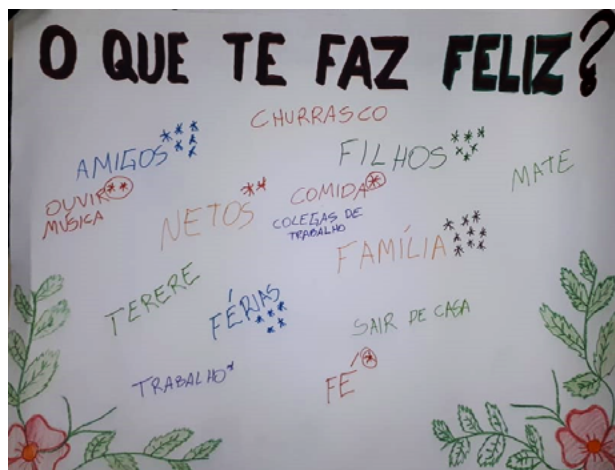 O QUE TE FAZ FELIZ?
CHURRASCO
AMIGOS
FILHOS
MATE
OUVIR
MÚSICA
NETOS
COMIDA
COLEGAS DE
TRABALHO
FAMÍLIA
TERERE
FÉRIAS
SAIR DE CASA
TRABALHO
FÉ